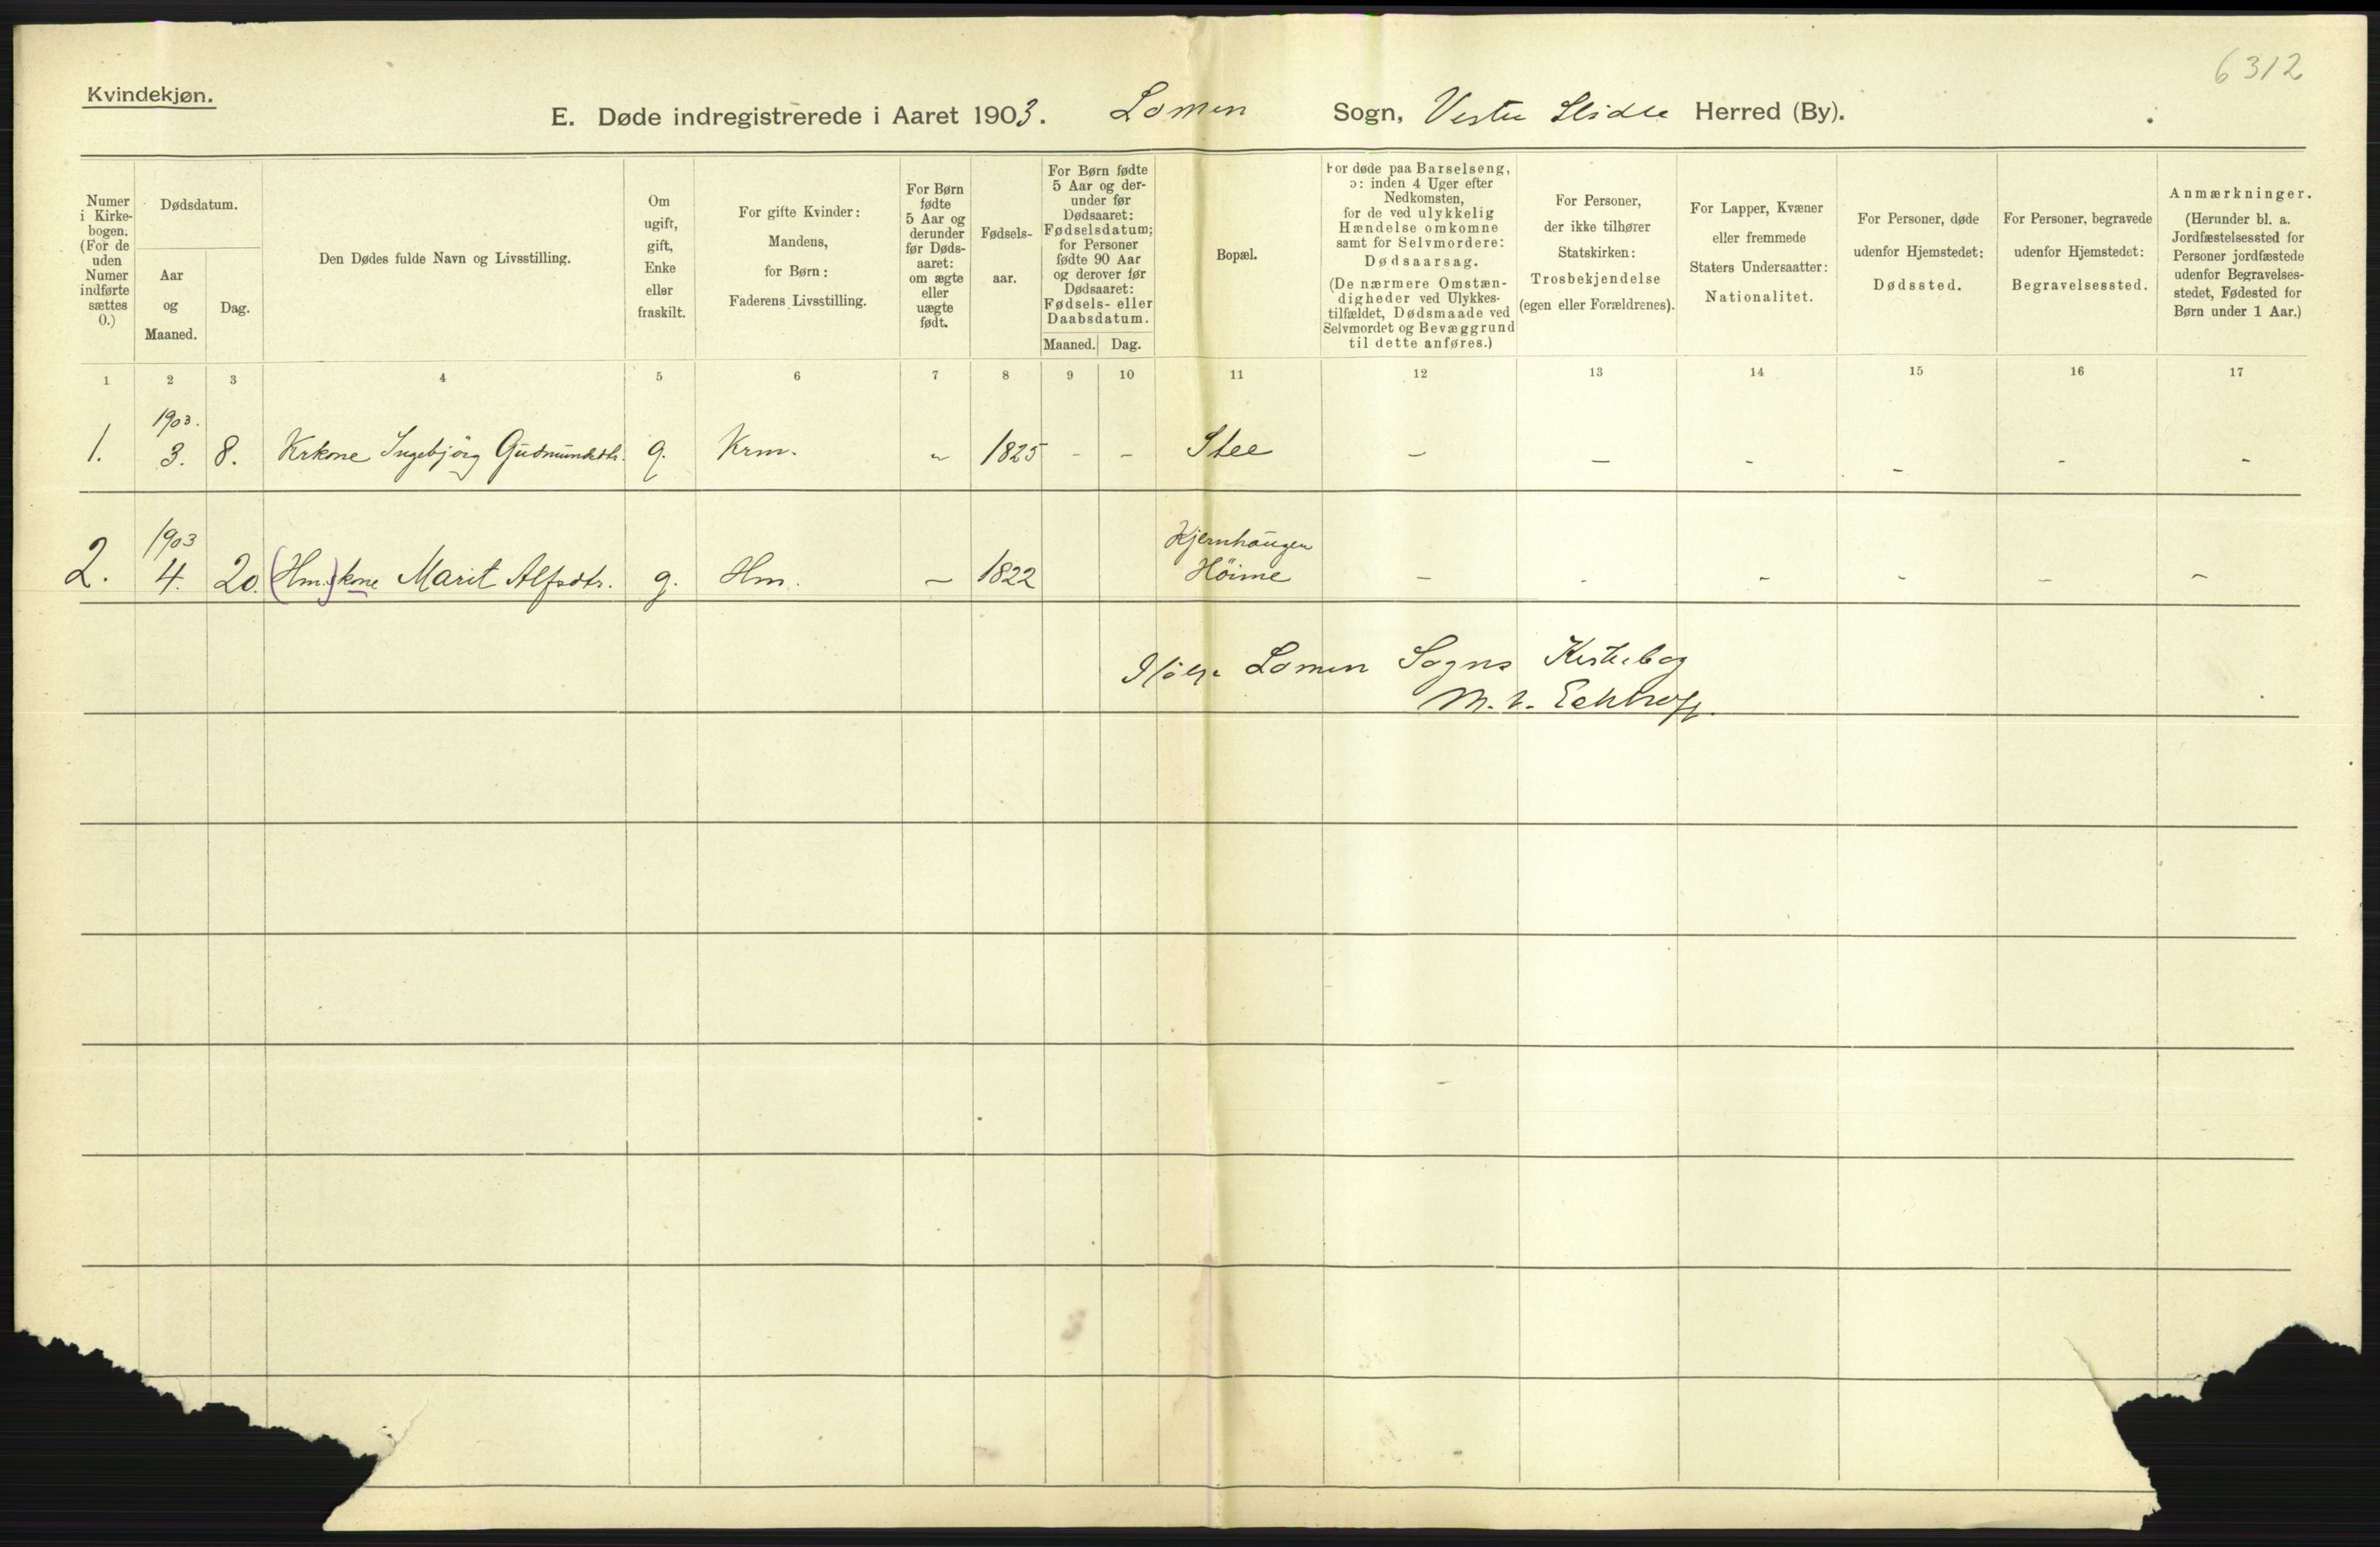 6312
Kvindekjøn.
E. Døde indregistrerede i Aaret 1903. Lomen Sogn, Vestre Slidre Herred (By).
Numer
i Kirke-
bogen.
(For de
uden
Numer
indførte
sættes
0.)
Dødsdatum.
Aar
og
Maaned.
Dag.
Den Dødes fulde Navn og Livsstilling.
Om
ugift,
gift,
Enke
eller
fraskilt.
For gifte Kvinder:
Mandens,
for Børn:
Faderens Livsstilling.
For Børn
fødte
5 Aar og
derunder
før Døds-
aaret:
om ægte
eller
uægte
født.
Fødsels-
aar.
For Børn fødte
5 Aar og der-
under før
Dødsaaret:
Fødselsdatum;
for Personer
fødte 90 Aar
og derover før
Dødsaaret:
Fødsels- eller
Daabsdatum.
Maaned. Dag.
Bopæl.
For døde paa Barselseng,
ɔ: inden 4 Uger efter
Nedkomsten,
for de ved ulykkelig
Hændelse omkomne
samt for Selvmordere:
Dødsaarsag.
(De nærmere Omstæn-
digheder ved Ulykkes-
tilfældet, Dødsmaade ved
Selvmordet og Bevæggrund
til dette anføres.)
For Personer,
der ikke tilhører
Statskirken:
Trosbekjendelse
(egen eller Forældrenes).
For Lapper, Kvæner
eller fremmede
Staters Undersaatter:
Nationalitet.
For Personer, døde
udenfor Hjemstedet:
Dødssted.
For Personer, begravede
udenfor Hjemstedet:
Begravelsessted.
Anmærkninger.
(Herunder bl. a.
Jordfæstelsessted for
Personer jordfæstede
udenfor Begravelses-
stedet, Fødested for
Børn under 1 Aar.)
1 2 3 4 5 6 7 8 9 10 11 12 13 14 15 16 17
1903.
1. 3. 8. Krkone Ingebjörg Gudmundsdtr. g. Krm. - 1825 - - Stee - - - - - -
1903 Kjernhaugen
2. 4. 20. (Hm.)kone Marit Alfsdtr. g. Hm. - 1822 Höime - - - - - -
Ifölge Lomen Sogns Kirkebog
M. v. Eckhoff.